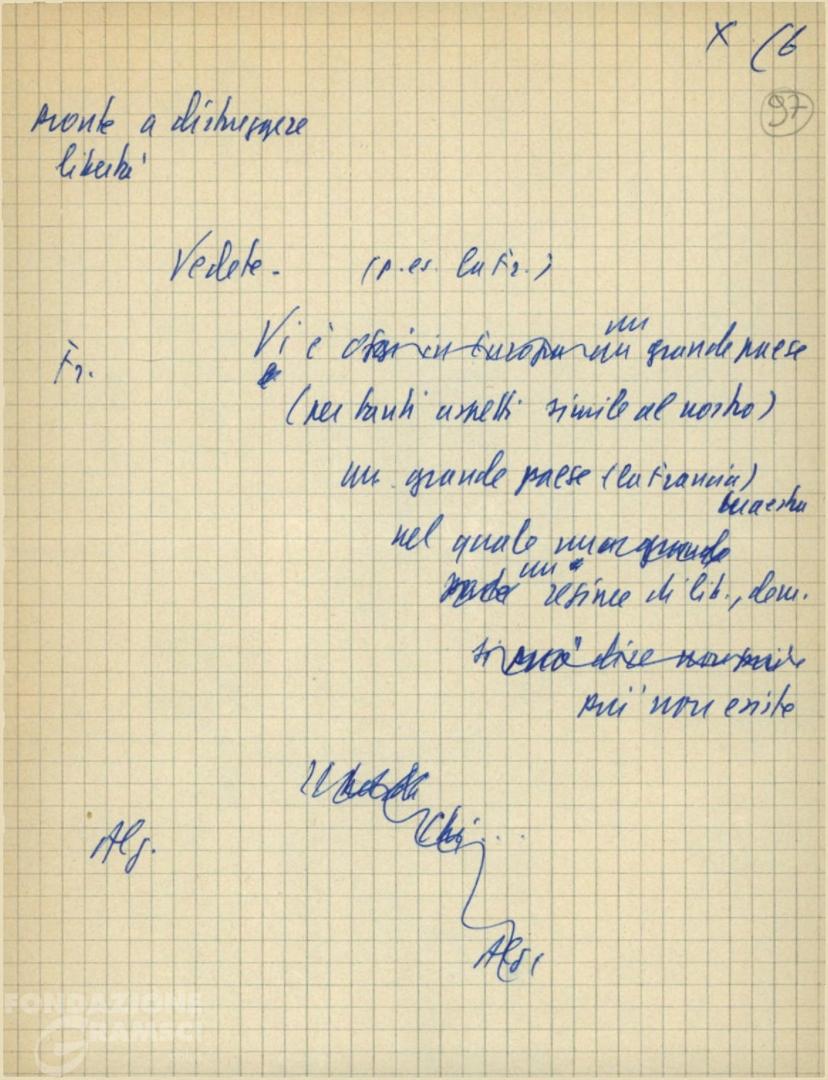 X (6
97
pronte a distruggere
libertà
Vedete. (p. es. la Fr.)
Fr. Vi è oggi in Europa un un grande paese
(per tanti aspetti simile al nostro)
un grande paese (la Francia)
maestra
nel quale
un regime di lib., dem.
si può dire
più non esiste
Chi...
Alg.
Alg.
FONDAZIONE
GRAMSCI